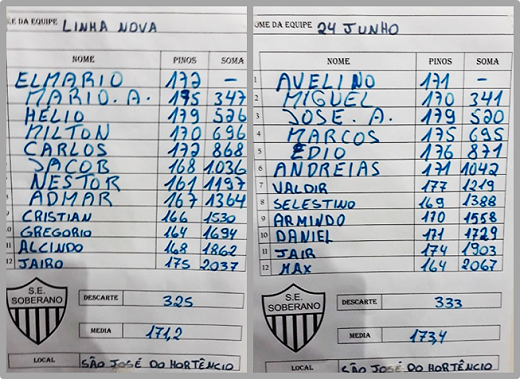 LE DA EQUIPE LINHA NOVA
NOME PINOS SOMA
ELMARIO 172 –
MARIO. A. 175 347
HÉLIO 179 526
MILTON 170 696
CARLOS 172 868
JACOB 168 1036
NESTOR 161 1197
ADMAR 167 1364
9 CRISTIAN 166 1530
10 GREGORIO 164 1694
11 ALCINDO 168 1862
12 JAIRO 175 2037
S.E.
SOBERANO
DESCARTE 325
MEDIA 171,2
LOCAL SÃO JOSÉ DO HORTÊNCIO
OME DA EQUIPE 24 JUNHO
NOME PINOS SOMA
1 AVELINO 171 –
2 MIGUEL 170 341
3 JOSE. A. 179 520
4 MARCOS 175 695
5 EDIO 176 871
6 ANDREIAS 171 1042
7 VALDIR 177 1219
8 SELESTINO 169 1388
9 ARMINDO 170 1558
10 DANIEL 171 1729
11 JAIR 174 1903
12 MAX 164 2067
S.E.
SOBERANO
DESCARTE 333
MEDIA 173,4
LOCAL SÃO JOSÉ DO HORTÊNCIO